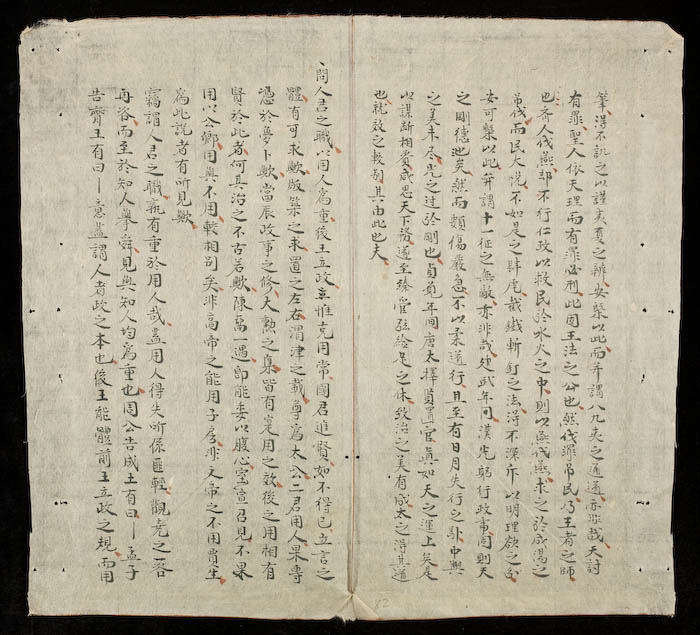 筆得不詭之以謹夷夏之辨安槩以此而并謂八九夷之通道亦非哉天討
有罪聖人依天理而有罪必刑此固王法之公也然伐罪吊民乃王者之師
也齊人伐燕却不行仁政以救民於水火之中則以燕伐燕求之於成湯之
吊伐而民大悅不如是之肆虐截鐵斬釘之法得不深斥以明理欲之分
安可槩以此并謂十一征之無敵亦非哉建武年間漢光躬行政事固則天
之剛德也矣然而頗傷嚴急不以柔道行且至有日月失行之駁中興
之美未尽光之过於剛也貞觀年間唐太擇賢置官真如天之運上矣是
以謀断相資咸思天下務遂至臻管弦給足之休致治之美有以太之得其道
也就效之較剔其由此也夫
問人君之職以用人為重後王立政立惟克用常國君進賢如不得已立言之
體有可求歟版築之求置之左右渭津之載尊為太公二君用人果專
憑於夢卜歟當辰政事之修大勲之集皆有寔用之效後之用相有
賢於此者何其治之不古若歟陳萬一遇即能委以腹心室宣召見不果
用以公卿用與不用較相別矣非高帝之能用子房非文帝之不用賈生
為此說者有所見歟
竊謂人君之職孰有重於用人哉盖用人得失所係匪輕觀堯之一咨
再咨而至於知人舉舜見與知人均為重也周公告成王有曰〡孟子
告齊王有曰〡意盖謂人者政之本也後王能體前王立政之規而用